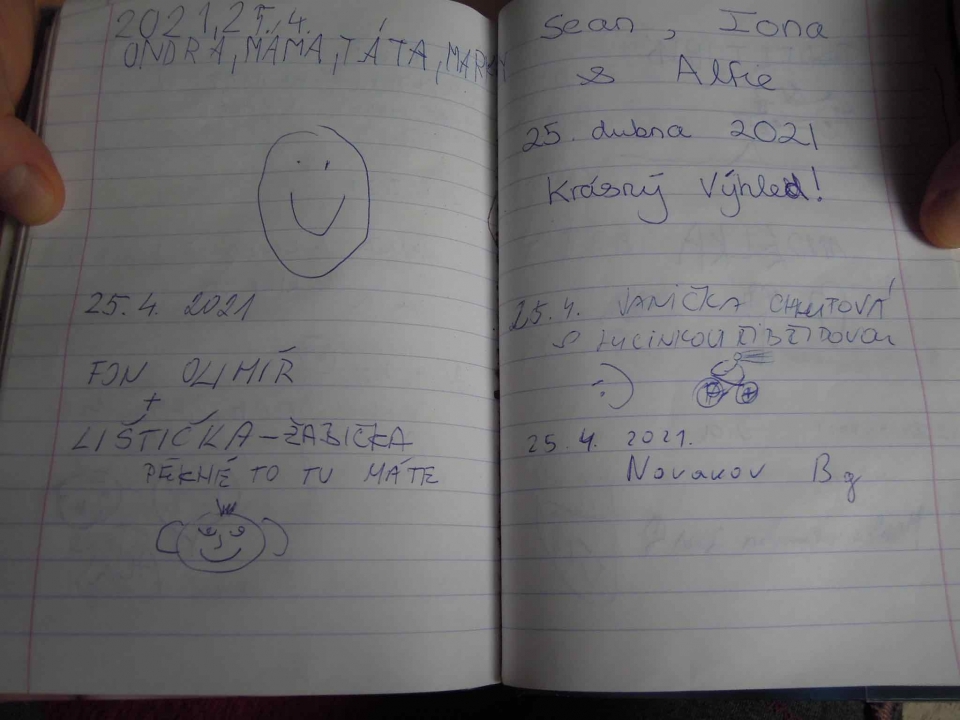 2021, 25. 4.
ONDRA, MÁMA, TÁTA,
25.4. 2021
FON OLIMÍŘ
+
LIŠTIČKA-ŽABIČKA
PĚKNÉ TO TU MÁTE
Sean, Iona
& Alfie
25. dubna 2021
Krásný Výhled!
25.4. JANIČKA
S LUCINKOU
:-)
25.4. 2021.
Novakov Bg